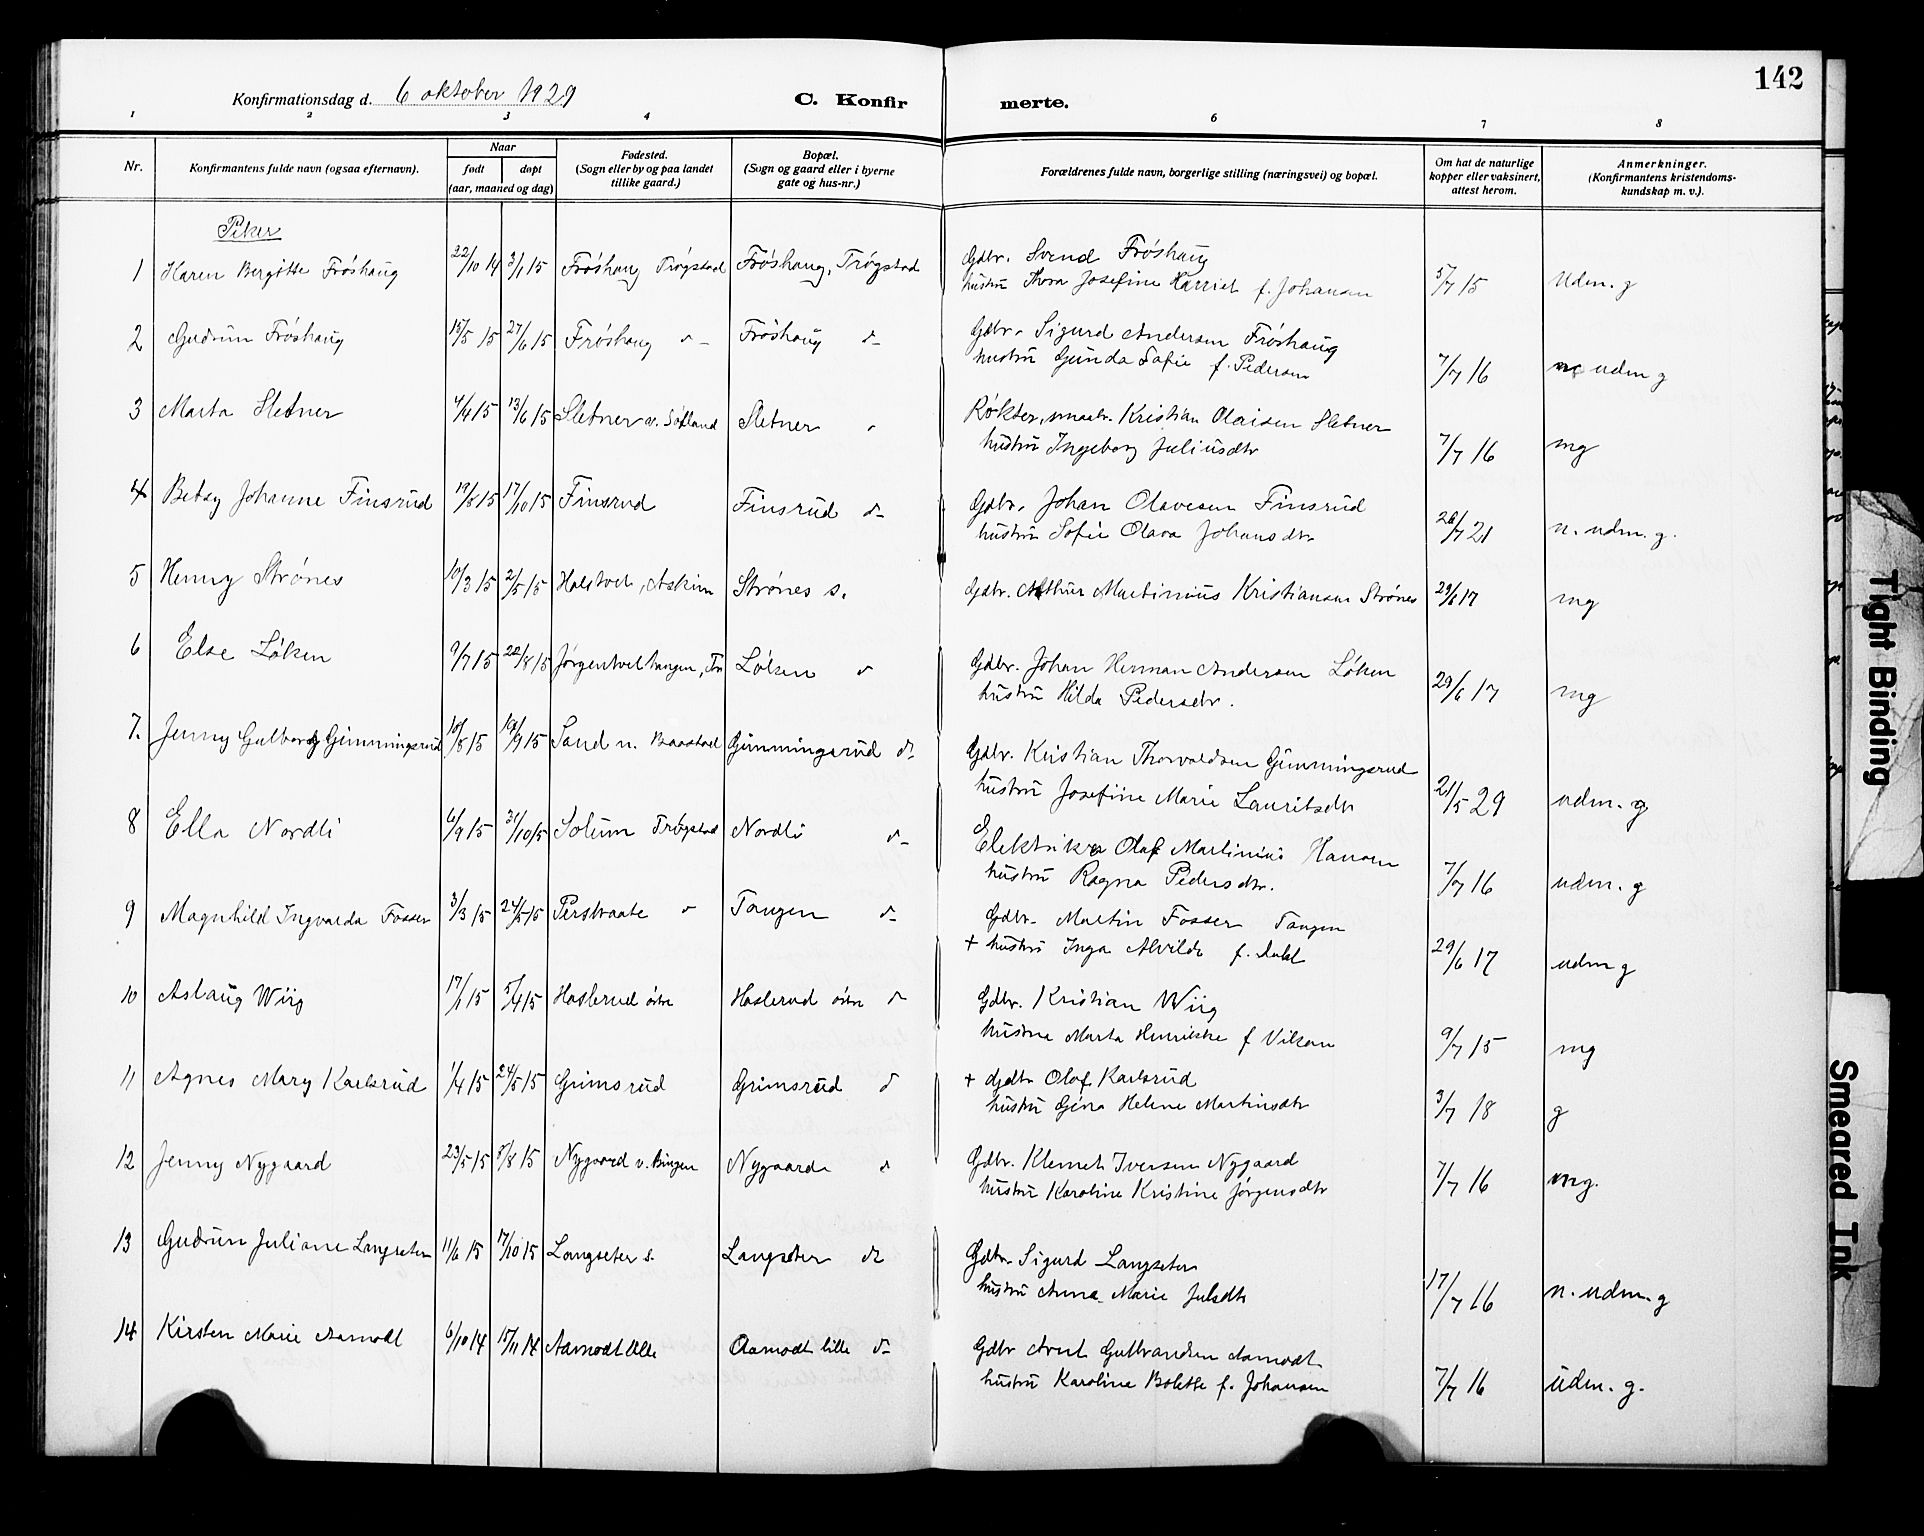 142
Konfirmationsdag d. 6 oktober 1929
C. Konfirmerte.
1 2 3 4 6 7 8
Nr.
Konfirmantens fulde navn (ogsaa efternavn).
Naar
født døpt
(aar, maaned og dag)
Fødested.
(Sogn eller by og paa landet
tillike gaard.)
Bopæl.
(Sogn og gaard eller i byerne
gate og hus-nr.)
Forældrenes fulde navn, borgerlige stilling (næringsvei) og bopæl.
Om hat de naturlige
kopper eller vaksinert,
attest herom.
Anmerkninger.
(Konfirmantens kristendoms-
kundskap m. v.).
Piker
1 Karen Bergitte Frøshaug 22/10 14 3/1 15 Frøshaug Trøgstad Frøshaug, Trøgstad Gdbr. Svend Frøshaug
hustru Thora Josefine Harriet f. Johansen 5/7 15 Udm. g
2 Gudrun Frøshaug 15/5 15 27/6 15 Frøshaug Frøshaug Gdbr. Sigurd Andersen Frøshaug
hustru Gunda Sofie f. Pedersen 7/7 16 udm g
3 Marta Sletner 4/4 15 13/6 15 Sletner Sletner Røkter, Kristian Olaisen Sletner
hustru Ingeborg Juliusdtr 7/7 16 mg
4 Betsy Johanne Finsrud 19/8 15 17/10 15 Finsrud Finsrud Gdbr. Johan Olavesen Finsrud
hustru Sofie Olava Johansdtr 26/7 21 n. udm. g.
5 Henny Strønes 10/3 15 2/5 15 Holstvet, Askim Strønes s. Gdbr. Arthur Martinius Kristiansen Strønes 29/6 17 mg
6 Else Løken 9/7 15 22/8 15 Løken Gdbr. Johan Herman Andersen Løken
hustru Hilda Pedersdtr. 29/6 17 mg
7. Jenny Gulborg Gimmingsrud 10/8 15 19/9 15 Sand n. Baastad Gimmingsrud Gdbr. Kristian Thorvaldsen Gimmingsrud
hustru Josefine Marie Lauritsdtr 21/5 29 udm. g
8 Ella Nordli 6/9 15 31/10 15 Solum Trøgstad Nordli Elektriker Olaf Martinius Hansen
hustru Ragna Pedersdtr. 7/7 16 udm. g
9 Magnhild Ingvarda Fosser 3/3 15 24/5 15 Perstraate Tangen Gdbr. Martin Fosser Tangen
+ hustru Inga Alvilde f. Dahl 29/6 17 udm g
10 Aslaug Wiig 17/1 15 5/4 15 Haslerud østre Haslerud østre Gdbr. Kristian Wiig
hustru Marta Henrikke f Vilsen 9/7 15 mg
11 Agnes Mary Karlsrud 1/4 15 24/5 15 Grimsrud Grimsrud + Gdbr Olof Karlsrud
hustru Gina Helene Martinsdtr 3/7 18 g
12 Jenny Nygaard 23/5 15 8/8 15 Nygaard v. Bingen Nygaard Gdbr. Klemet Iversen Nygaard
hustru Karoline Kristine Jørgensdtr 7/7 16 mg.
13 Gudrun Juliane Langseter 11/6 15 17/10 15 Langseter s. Langseter Gdbr Sigurd Langseter
hustru Anna Marie Julsdtr 17/7 16 n. udm. g
14 Kirsten Marie Aamodt 6/10 14 15/11 14 Aamodt lille Aamodt lille Gdbr Arnt Gulbrandsen Aamodt
hustru Karoline Bolette f. Johansen 7/7 16 udm. g.
Tight Binding
Smeared Ink